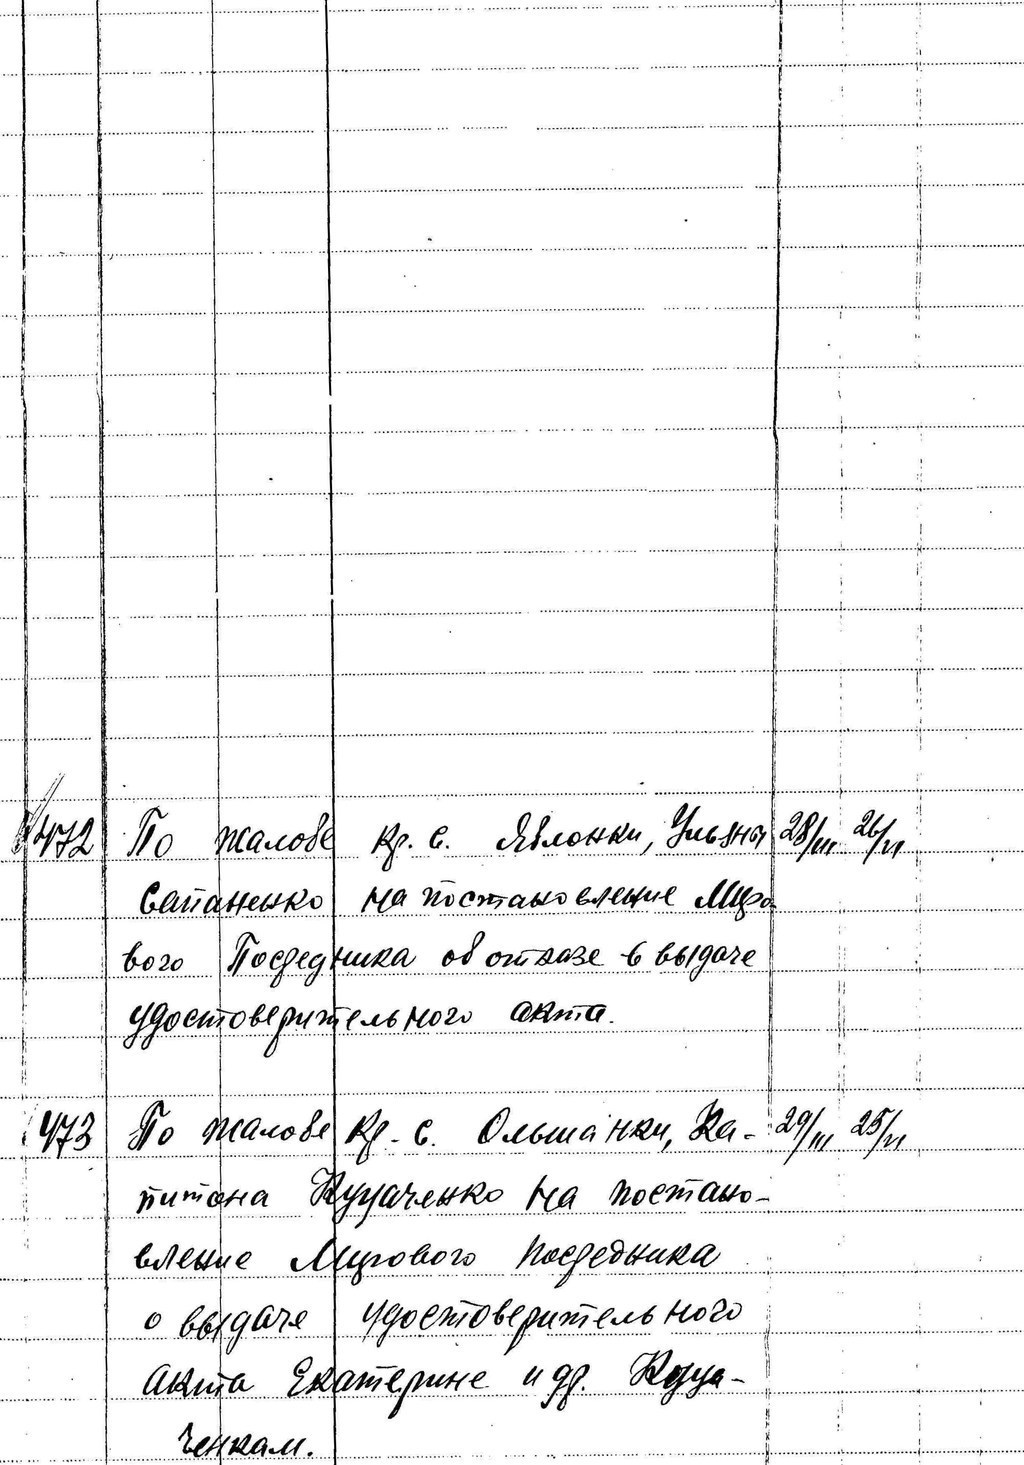 472 По жалобе кр. с. Яблонки, Ульяны 28/III 26/VI
Сапаненко на постановление Миро
вого Посредника об отказе в выдаче
удостоверительного акта.
473 По жалобе кр. с. Ольшанки, Ка- 29/III 25/VI
питона на постано-
вление Мирового посредника
о выдаче удостоверительного
акта Екатерине и др.
ченкам.